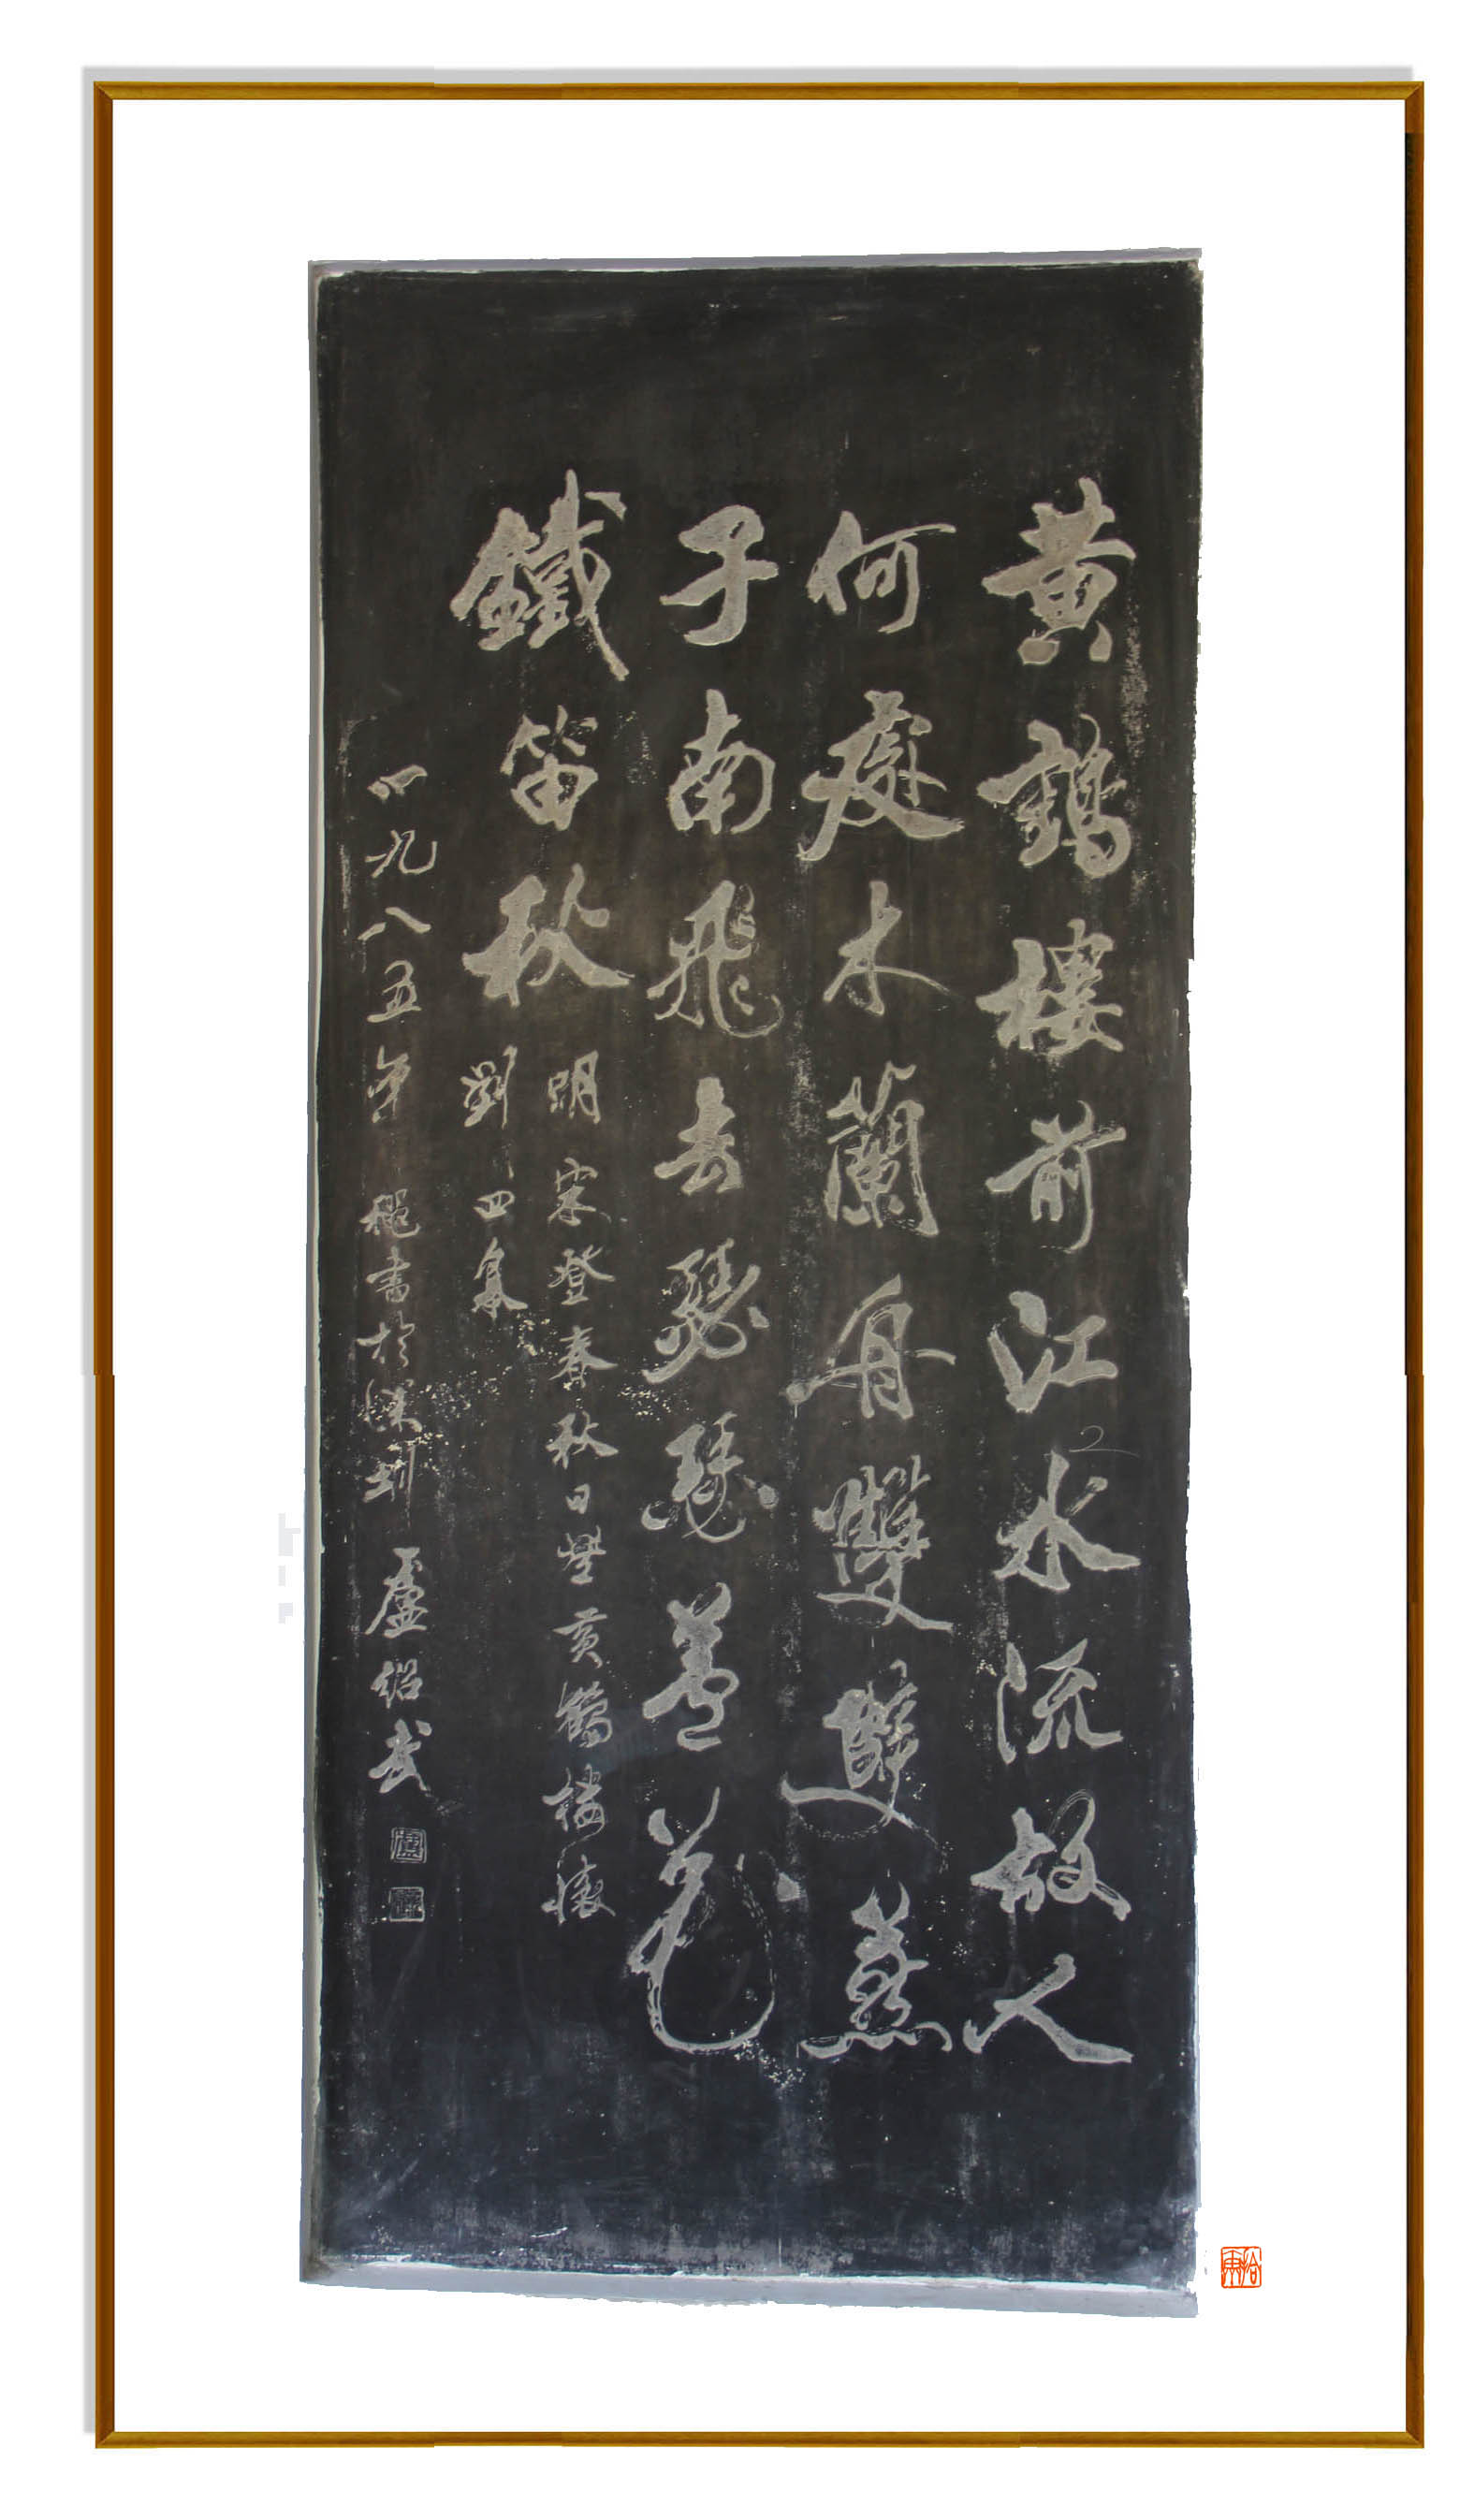 黄鶴樓前江水流故人
何處木蘭舟雙雙燕
子南飛去愁聽蘆花
鐵笛秋
明宋登春秋日與黄鶴樓懷
劉四家
一九八五年 書於深圳 盧紹武